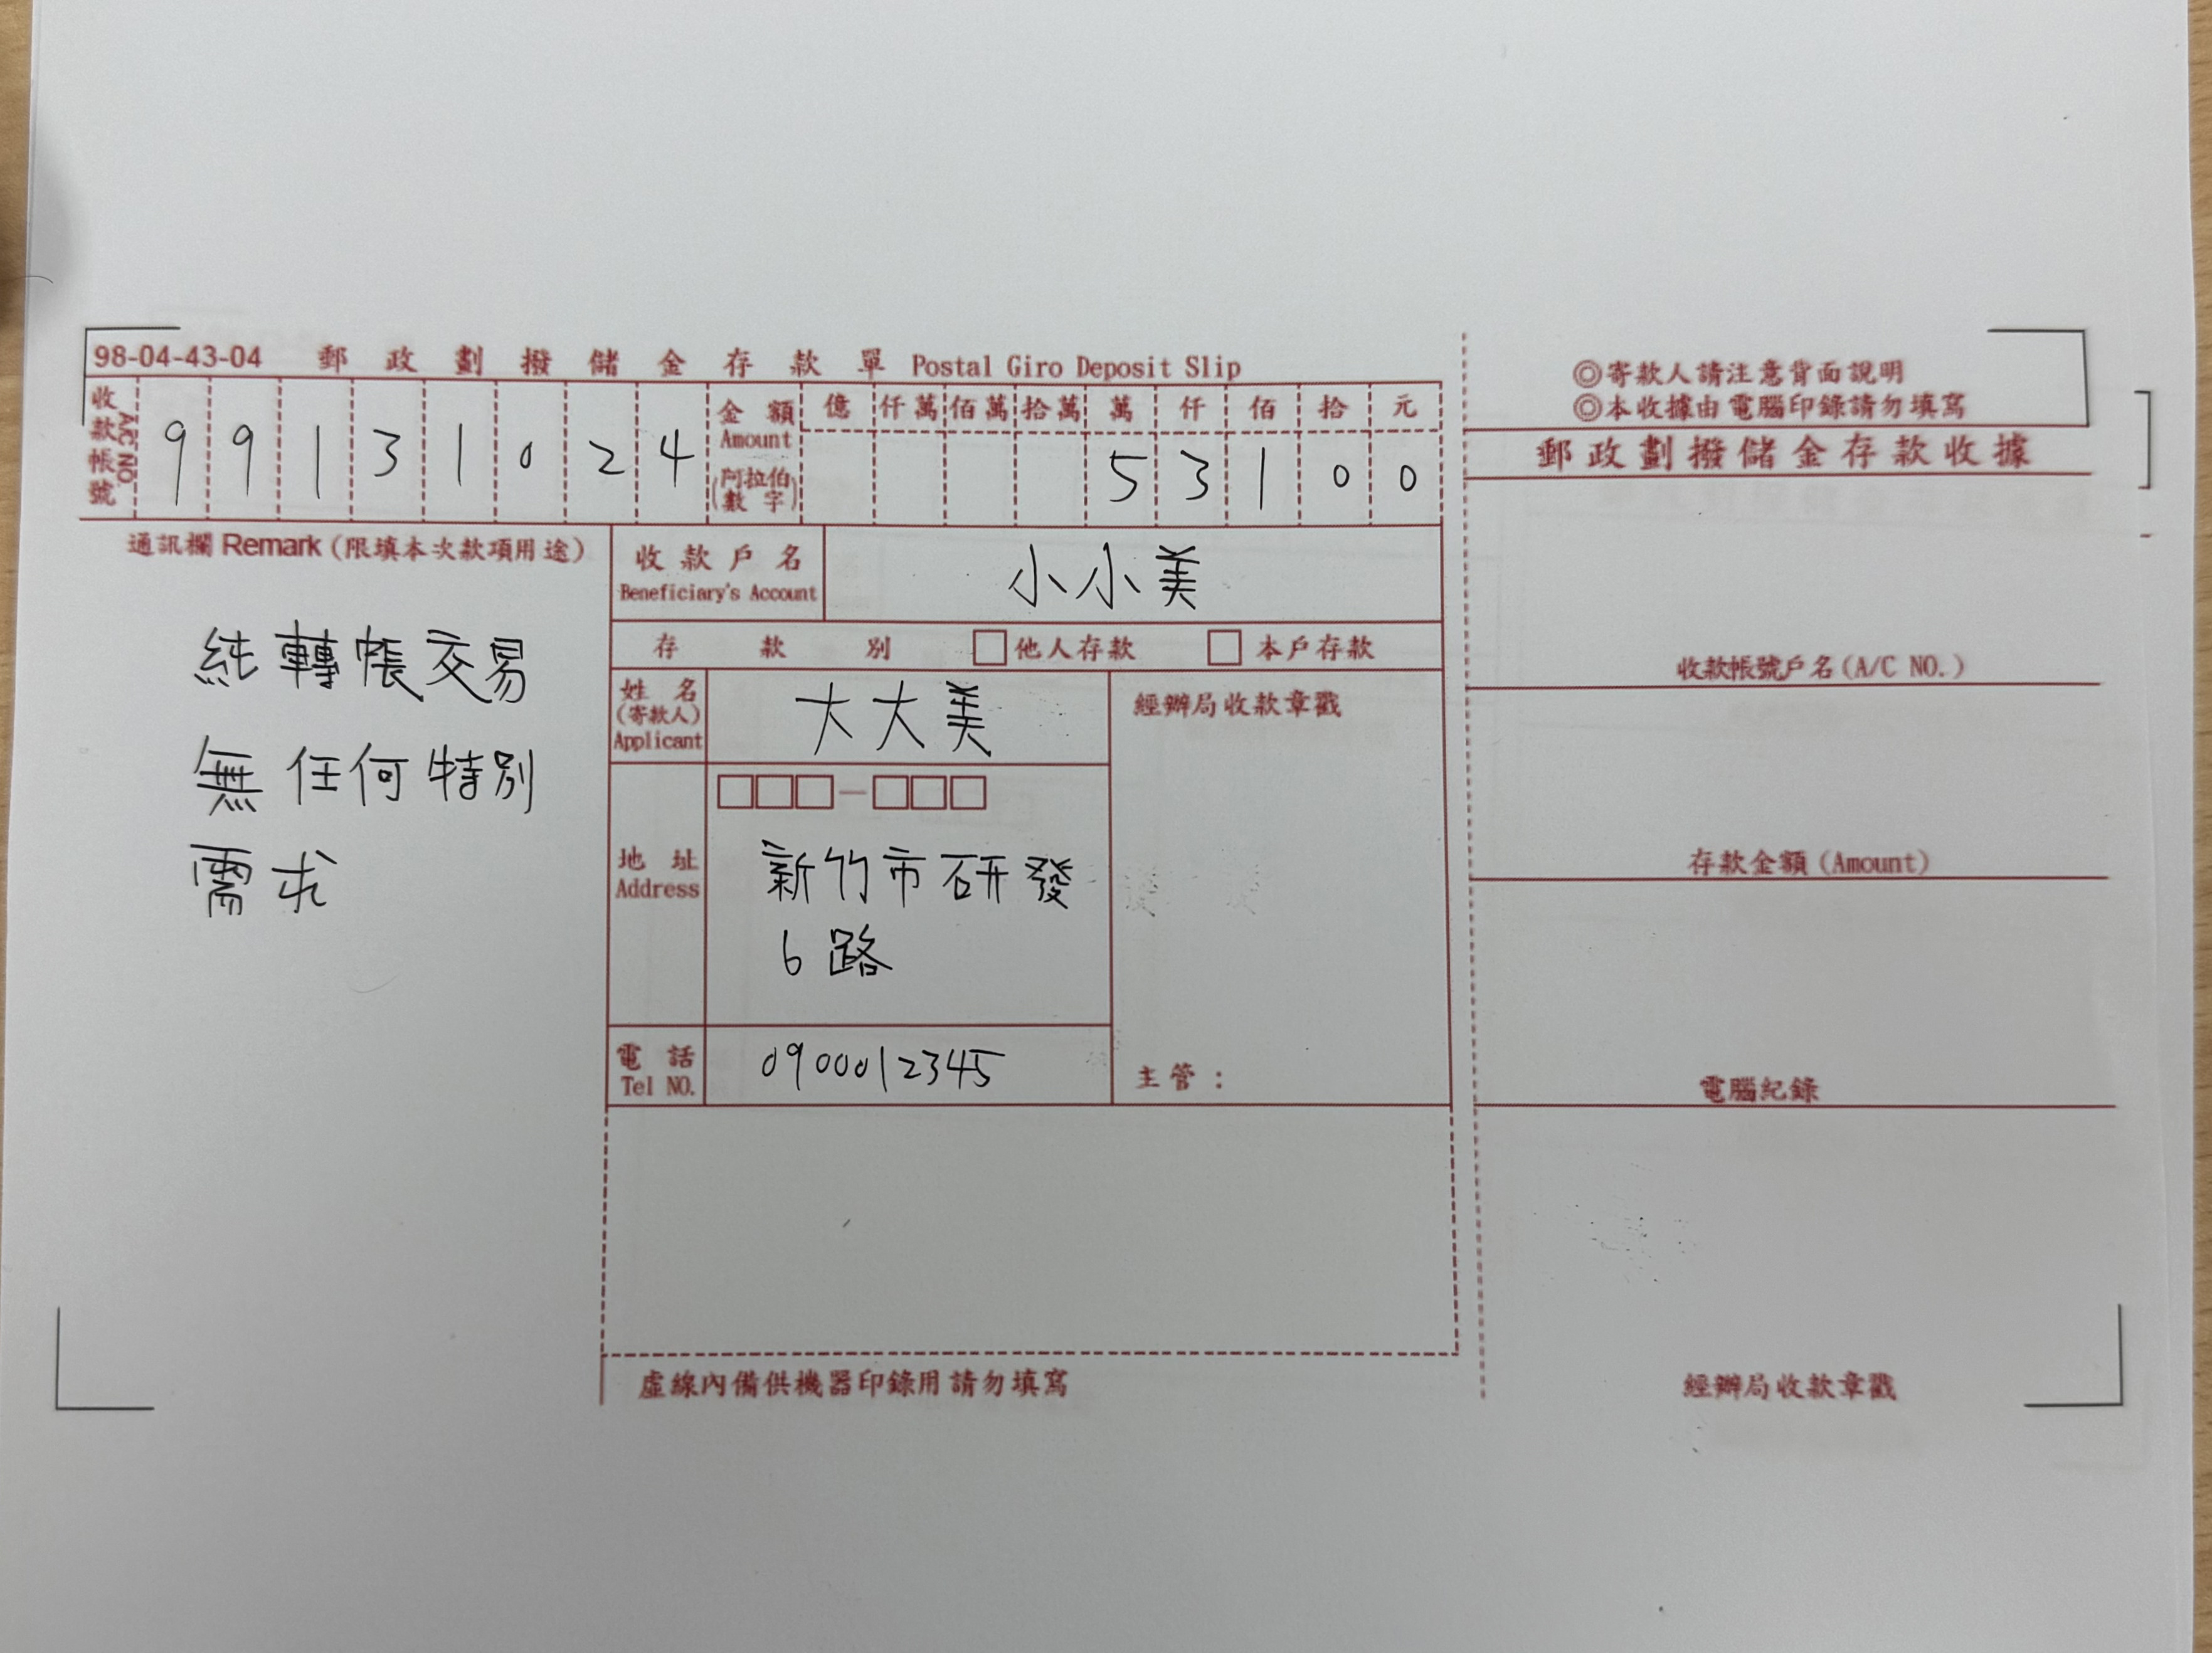 98-04-43-04 郵政劃撥儲金存款單 Postal Giro Deposit Slip
收款帳號 A/C NO. 9 9 1 3 1 0 2 4
金額 Amount (阿拉伯數字)
億 仟萬 佰萬 拾萬 萬 仟 佰 拾 元
5 3 1 0 0
通訊欄 Remark (限填本次款項用途)
純轉帳交易
無任何特別
需求
收款戶名
Beneficiary's Account
小小美
存款別 □他人存款 □本戶存款
姓名
(寄款人)
Applicant
大大美
地址
Address
□□□—□□□
新竹市研發
6路
電話
Tel NO.
0900012345
經辦局收款章戳
主管：
虛線內備供機器印錄用請勿填寫
◎寄款人請注意背面說明
◎本收據由電腦印錄請勿填寫
郵政劃撥儲金存款收據
收款帳號戶名(A/C NO.)
存款金額(Amount)
電腦紀錄
經辦局收款章戳